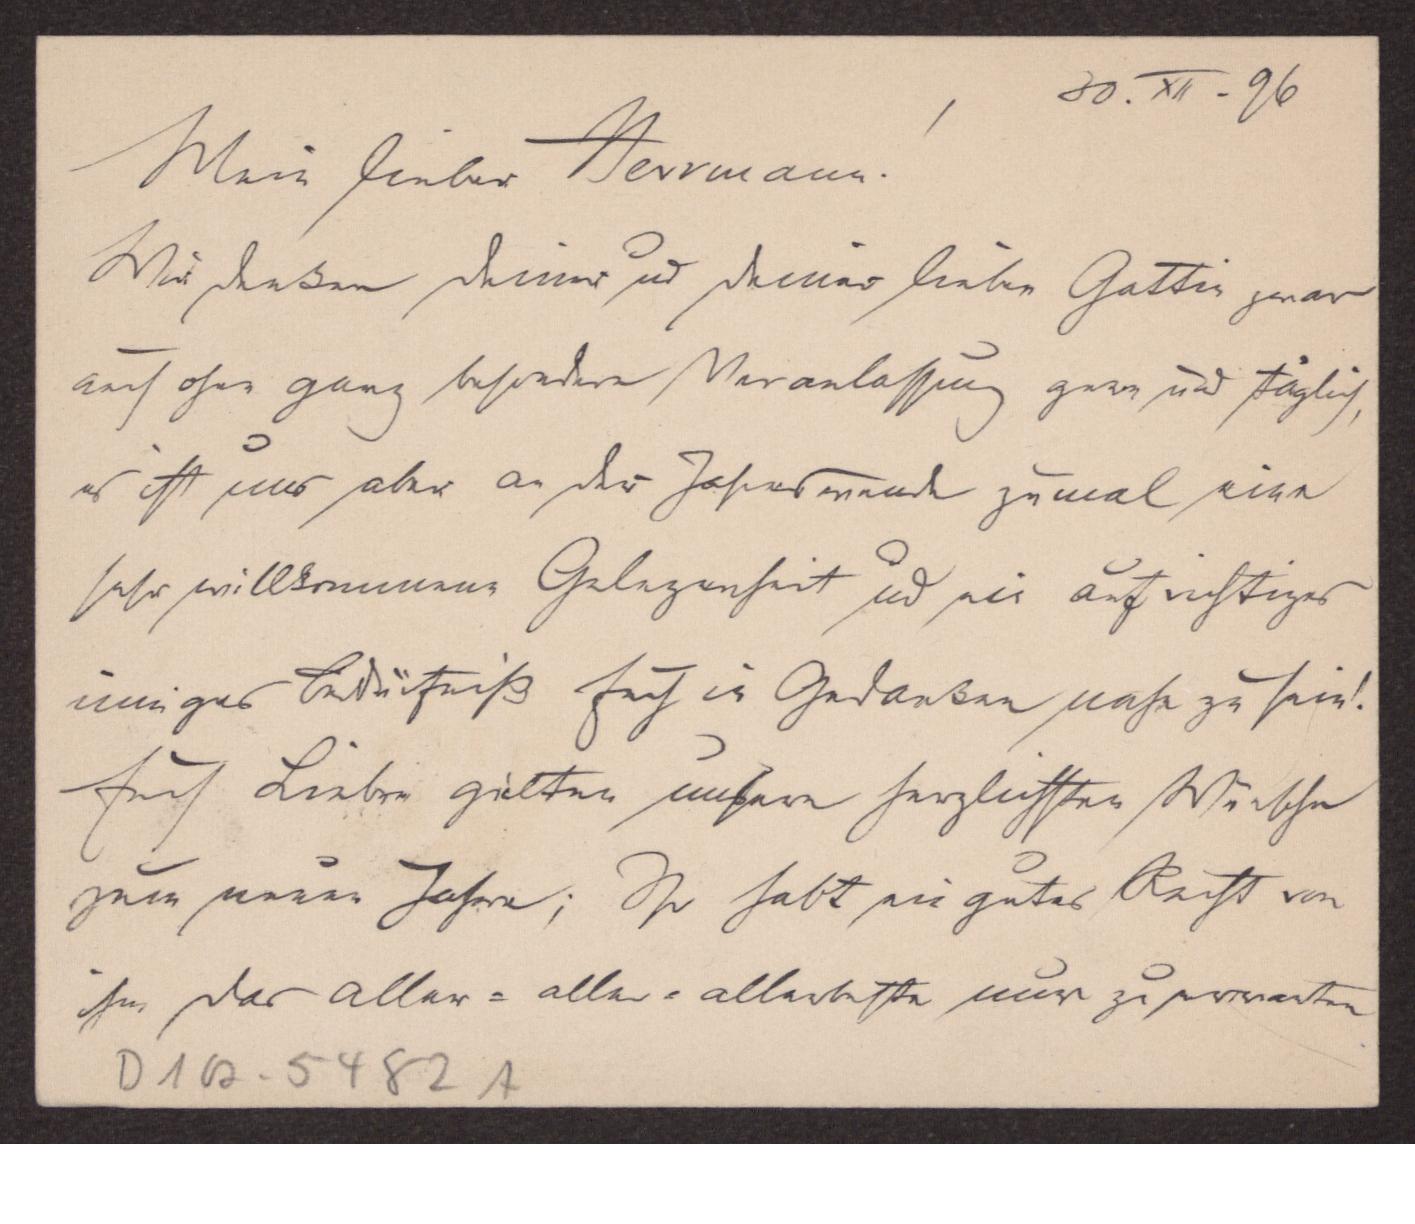 30. XII - 96
Mein lieber Herrmann!
Wir denken deiner und deiner lieben Gattin zwar
auch ohne ganz besondere Veranlassung gern und täglich,
es ist uns aber an der Jahreswende zumal eine
sehr willkommene Gelegenheit und ein aufrichtiges
inniges Bedürfniß Euch in Gedanken nahe zu sein!
Euch Lieben gelten unsere herzlichsten Wünsche
zum neuen Jahre; Ihr habt ein gutes Recht von
ihm das aller = aller = allerbeste nur zu erwarten
D 16a. 5482 A